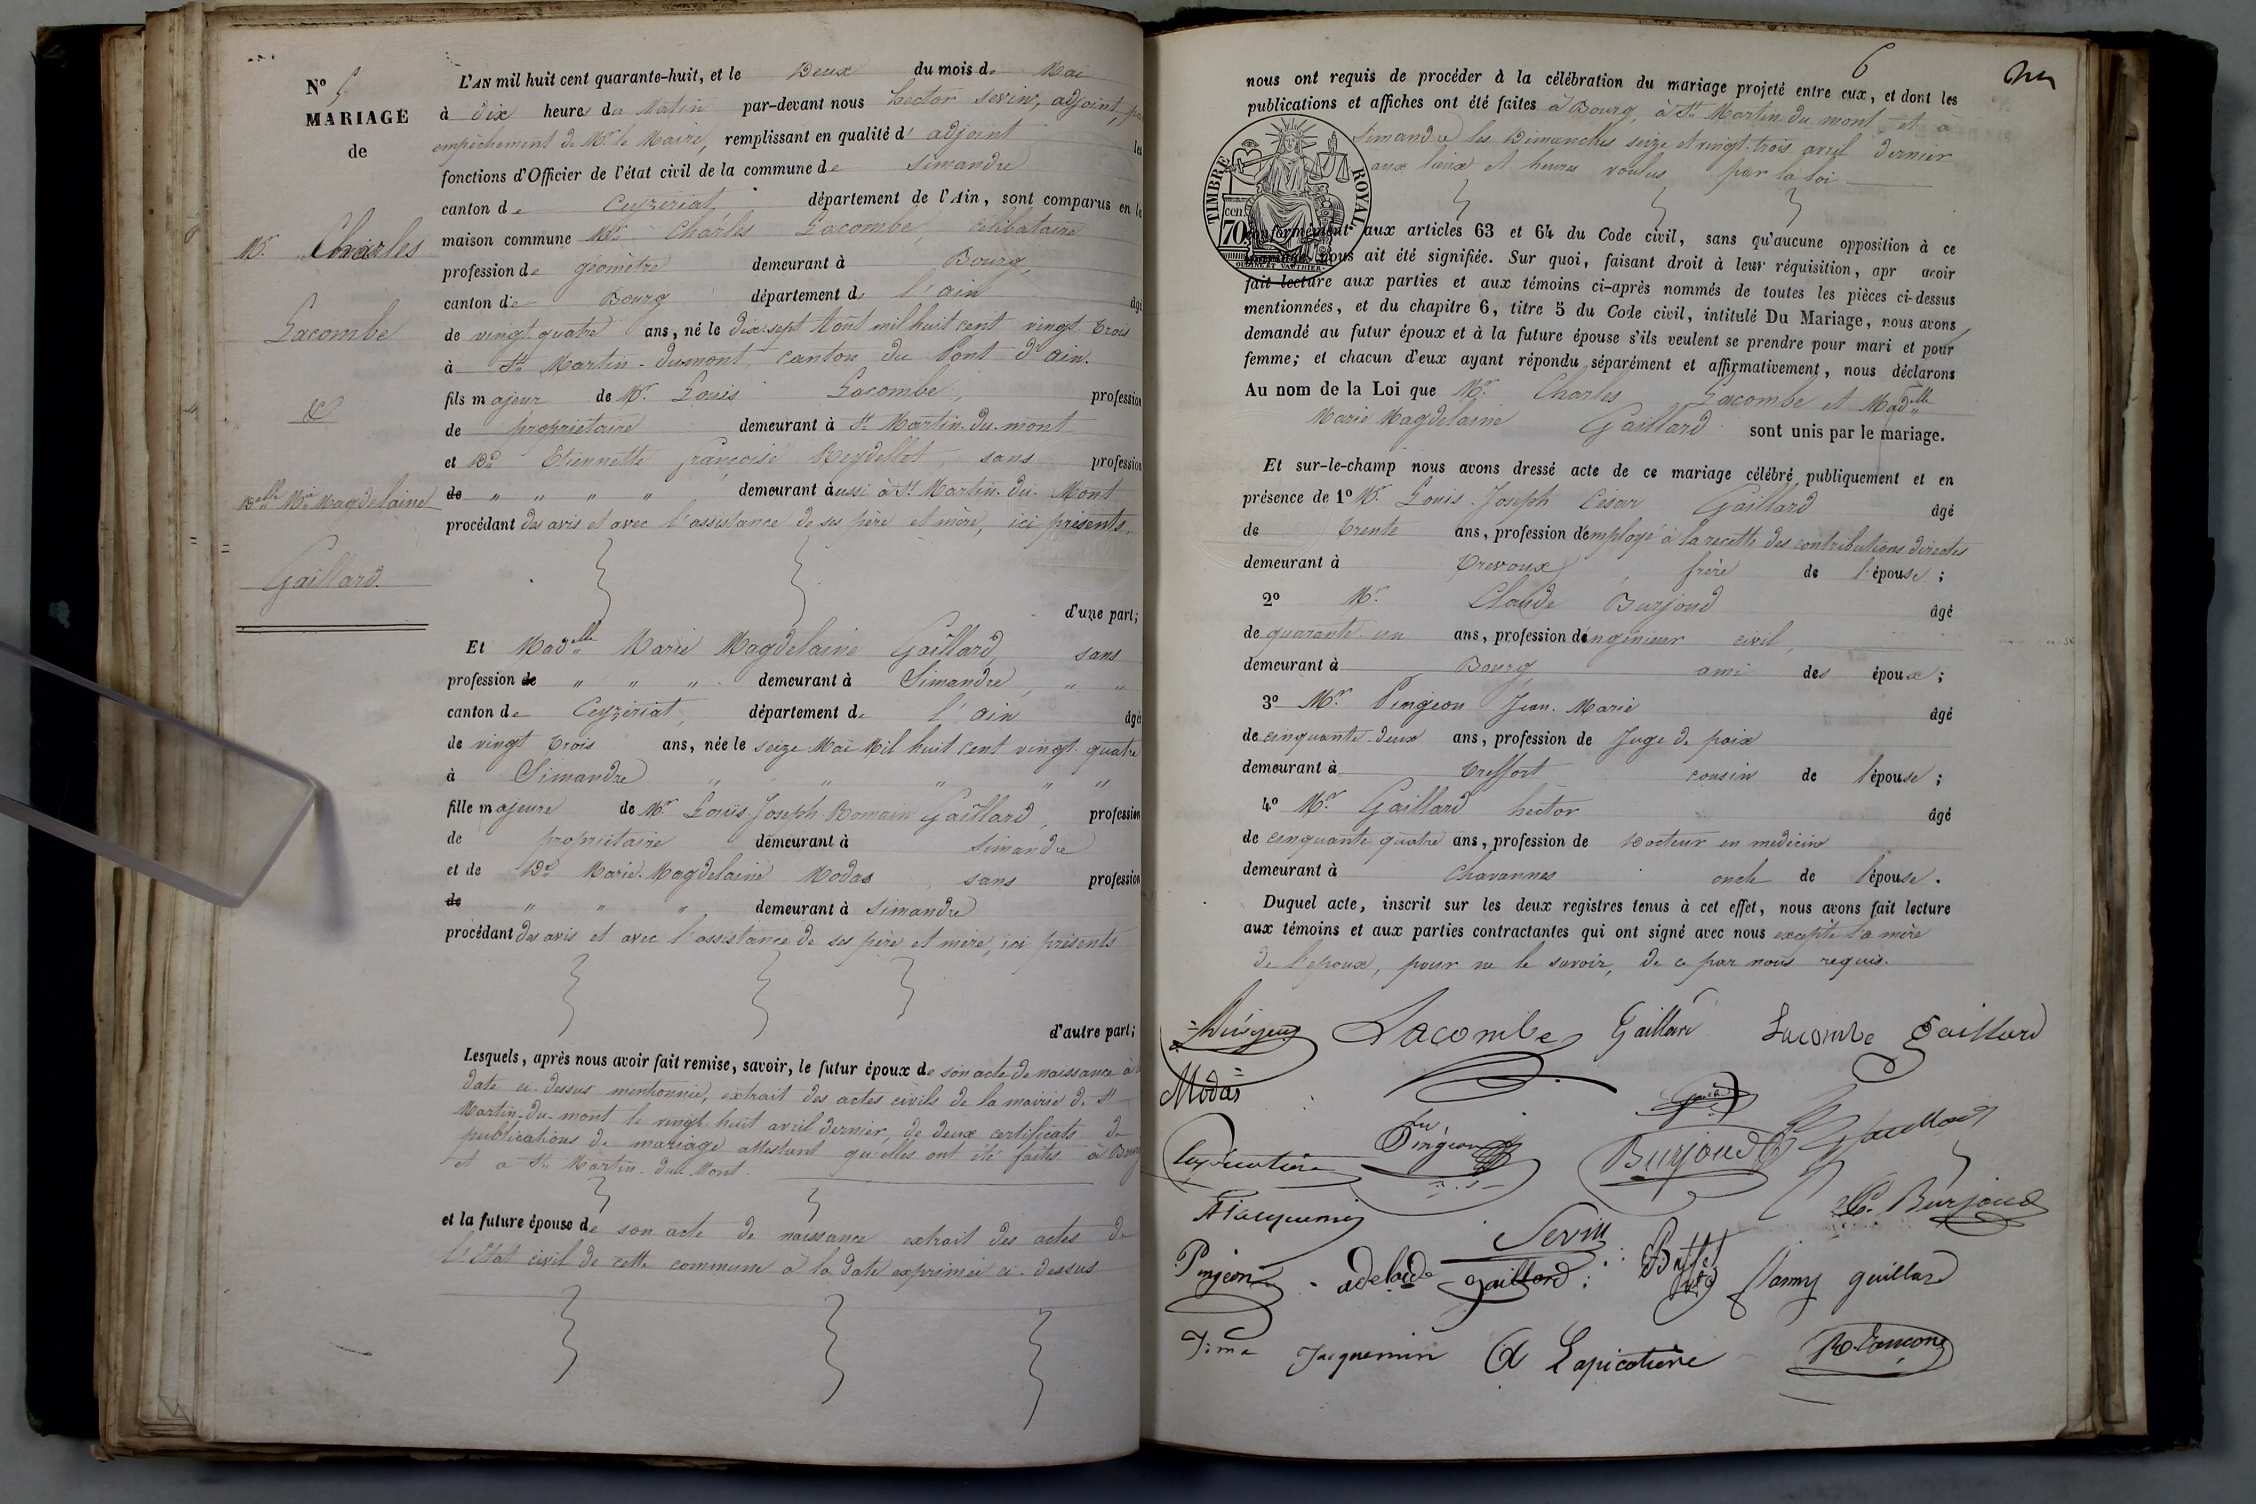 Nº 5
MARIAGE
de
Mr. Charles
Lacombe
&
Delle Mie Magdelaine
Gaillard.
L'AN mil huit cent quarante-huit, et le Deux du mois de Mai
à dix heures du Matin par-devant nous hector sevin, adjoint, par
empêchement de Mr. le Maire, remplissant en qualité d'adjoint les
fonctions d'Officier de l'état civil de la commune de simandre
canton de Ceyzeriat département de l'Ain, sont comparus en la
maison commune Mr. Charles Lacombe, célibataire
profession de géomètre demeurant à Bourg,
canton de Bourg département de l'ain âgé
de vingt quatre ans, né le dix sept Août mil huit cent vingt trois
à St. Martin-dumont canton du Pont d'ain.
fils majeur de Mr. Louis Lacombe, profession
de propriétaire demeurant à St. Martin-du-mont
et De Etiennette françoise Reydellet, sans profession
de " " " " demeurant aussi à St. Martin-du-Mont
procédant des avis et avec l'assistance de ses père et mère, ici présents
d'une part;
Et Madelle Marie Magdelaine Gaillard, sans
profession de " " " demeurant à Simandre, " "
canton de Ceyzériat, département de l'ain âgée
de vingt trois ans, née le seize Mai Mil huit cent vingt quatre
à Simandre " " " " "
fille majeure de Mr. Louis Joseph Romain Gaillard, profession
de propriétaire demeurant à simandre
et de De Marie Magdelaine Modas sans profession
de " " " demeurant à simandre
procédant des avis et avec l'assistance de ses père et mère, ici présents
d'autre part;
Lesquels, après nous avoir fait remise, savoir, le futur époux de son acte de naissance à la
date ci-dessus mentionnée, extrait des actes civils de la mairie de St
Martin-du-mont le vingt huit avril dernier, de deux certificats de
publications de mariage attestant qu'elles ont été faites à Bourg
et à St. Martin-du-Mont.
et la future épouse de son acte de naissance extrait des actes de
l'Etat civil de cette commune à la date exprimée ci-dessus
6
nous ont requis de procéder à la célébration du mariage projeté entre eux, et dont les
publications et affiches ont été faites à Bourg, à St. Martin-du mont et à
simandre les Dimanches seize et vingt-trois avril dernier
aux lieux et heures voulus par la loi
TIMBRE ROYAL
cen.
70
conformément aux articles 63 et 64 du Code civil, sans qu'aucune opposition à ce
mariage nous ait été signifiée. Sur quoi, faisant droit à leur réquisition, apr avoir
fait lecture aux parties et aux témoins ci-après nommés de toutes les pièces ci-dessus
mentionnées, et du chapitre 6, titre 5 du Code civil, intitulé Du Mariage, nous avons
demandé au futur époux et à la future épouse s'ils veulent se prendre pour mari et pour
femme; et chacun d'eux ayant répondu séparément et affirmativement, nous déclarons
Au nom de la Loi que Mr. Charles Lacombe et Madelle
Marie Magdelaine Gaillard sont unis par le mariage.
Et sur-le-champ nous avons dressé acte de ce mariage célébré publiquement et en
présence de 1º Mr. Louis Joseph César Gaillard âgé
de trente ans, profession d'employé à la recette des contributions directes
demeurant à Trevoux frère de l'épouse;
2º Mr. Claude Burjoud âgé
de quarante-un ans, profession d'ingénieur civil,
demeurant à Bourg ami des époux;
3º Mr. Pingeon Jean-Marie âgé
de cinquante-deux ans, profession de Juge de paix
demeurant à treffort cousin de l'épouse;
4º Mr. Gaillard hector âgé
de cinquante quatre ans, profession de docteur en medicine
demeurant à Chavannes oncle de l'épouse.
Duquel acte, inscrit sur les deux registres tenus à cet effet, nous avons fait lecture
aux témoins et aux parties contractantes qui ont signé avec nous excepté la mère
de l'époux, pour ne le savoir, de ce par nous requis.
Lacombe Gaillard Lacombe gaillard
Modas
Pingeon Burjoud Gaillard
C. Burjoud
Sevin
Pingeon adelaide gaillard fanny gaillard
Jacquemin Lapicotiere